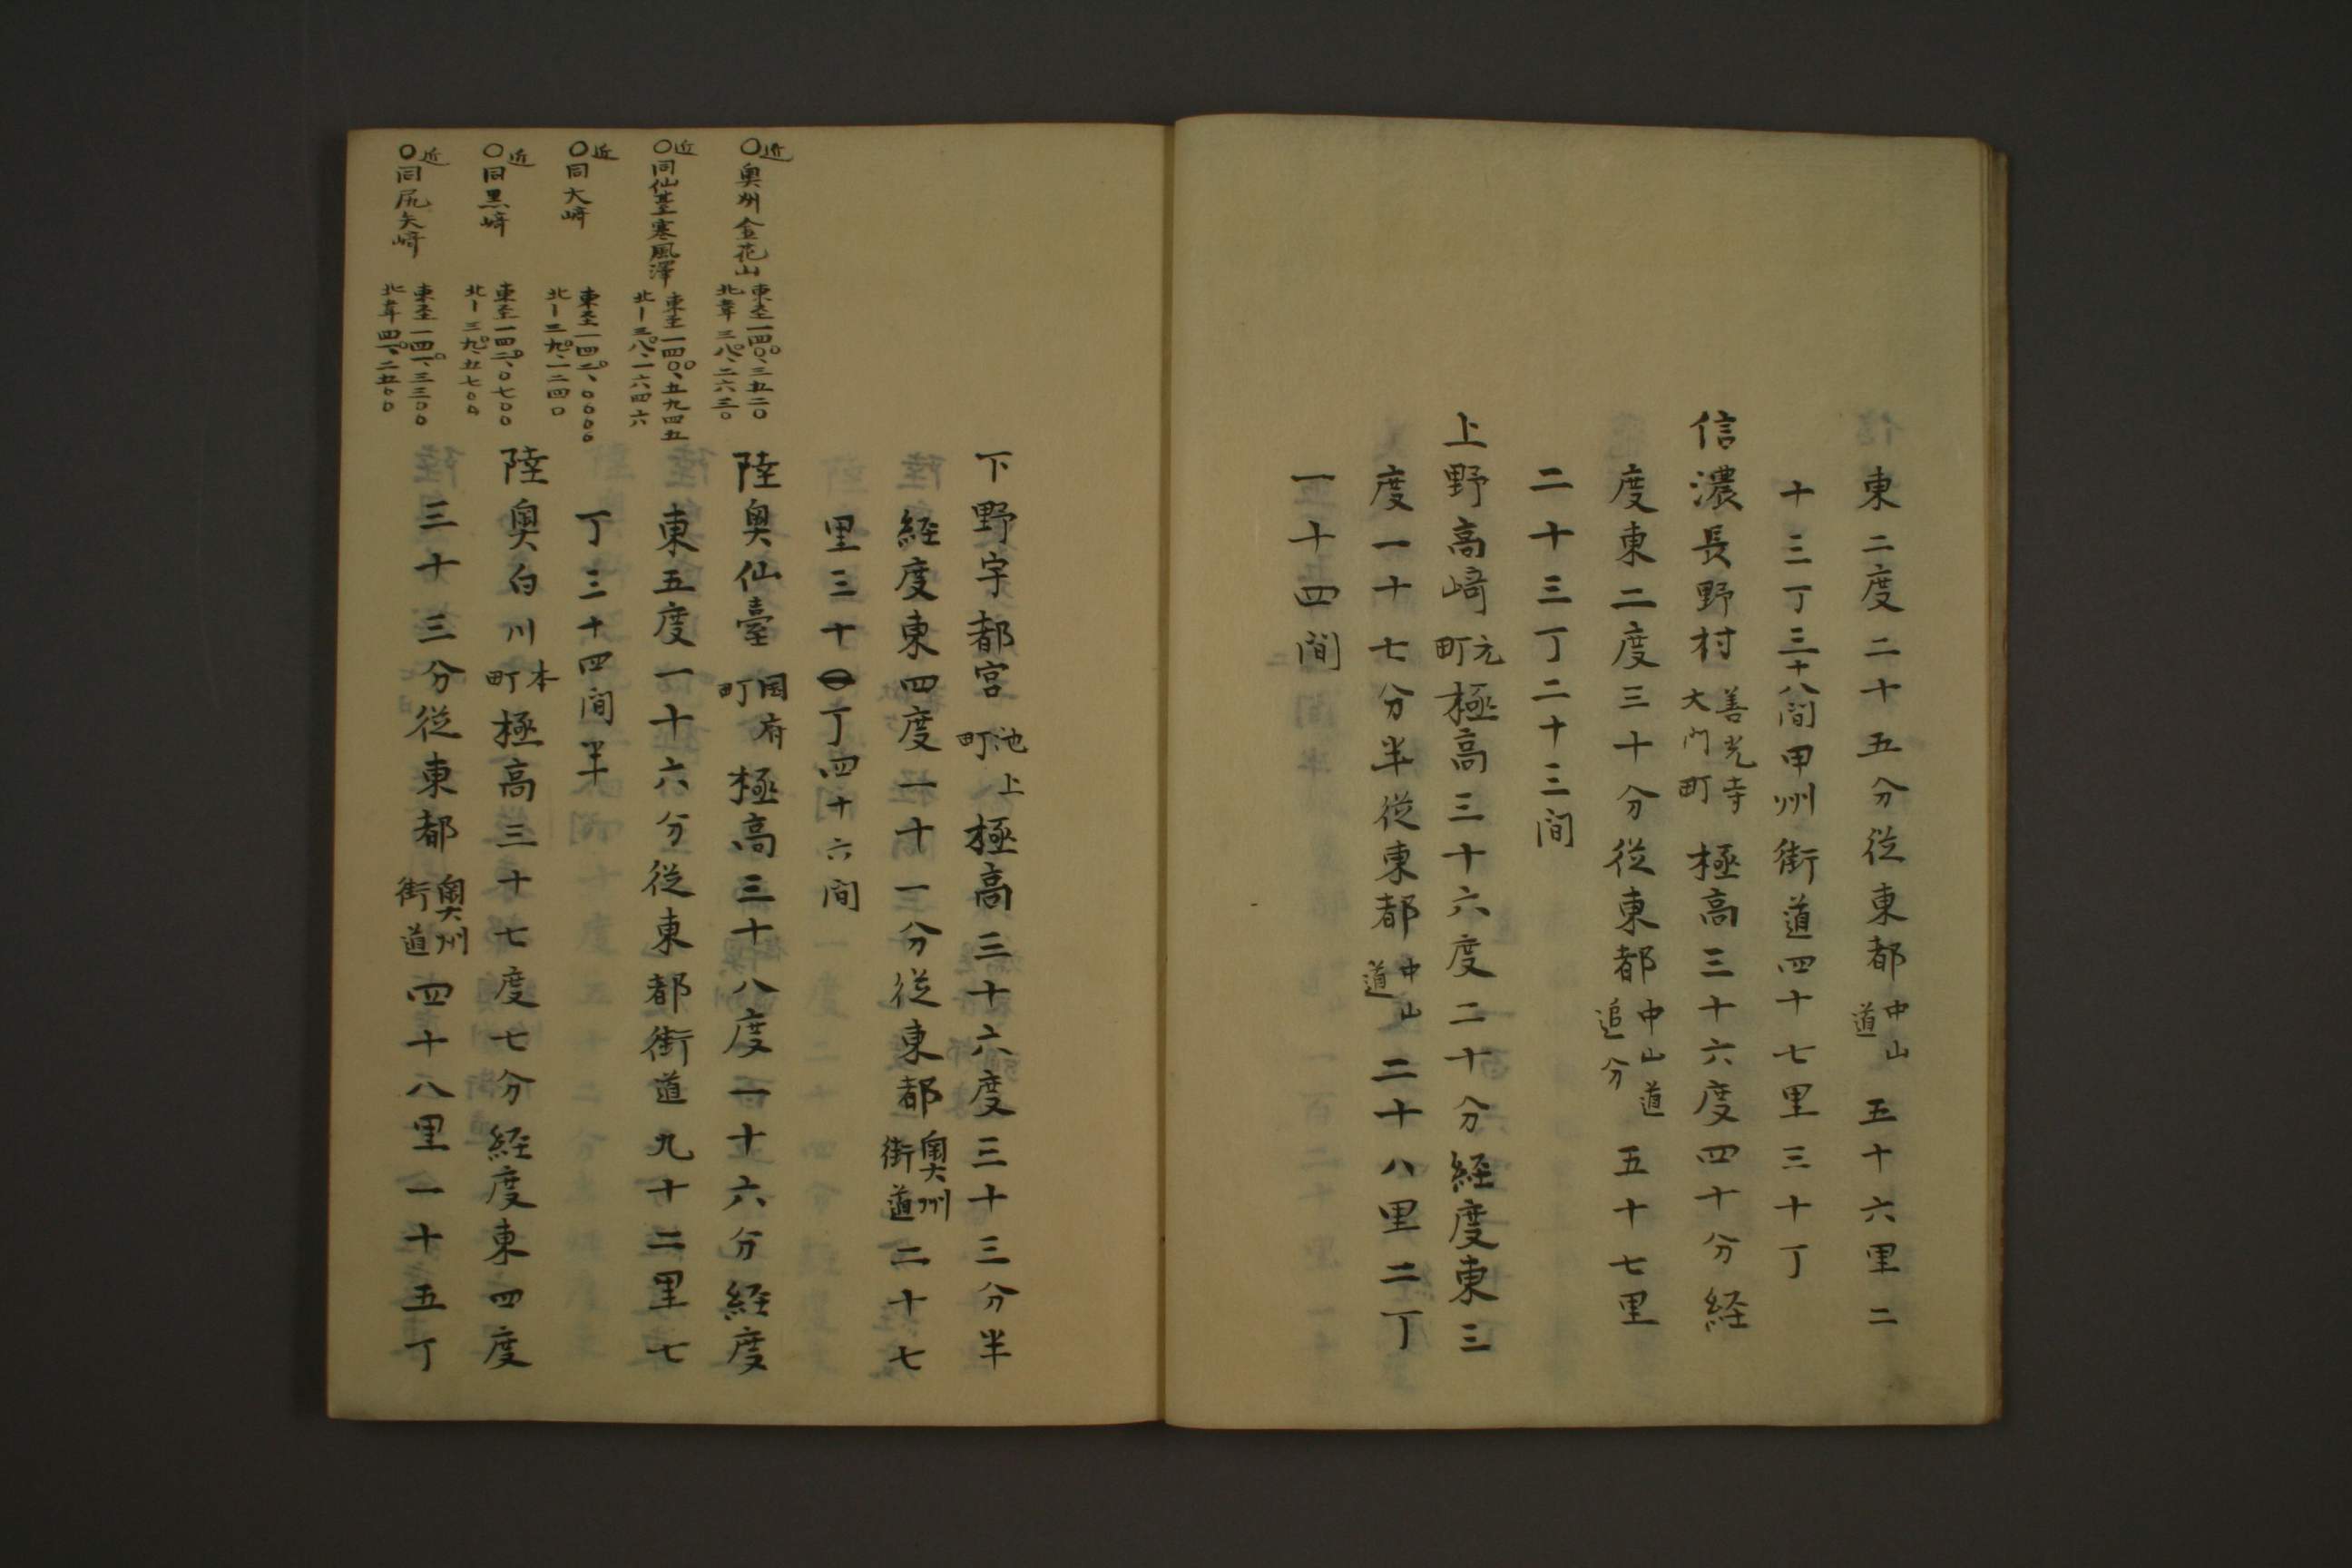 東二度二十五分従東都中山道五十六里二
十三丁三十八間甲州街道四十七里三十丁
信濃長野村善光寺大門町極高三十六度四十分経
度東二度三十分従東都中山道追分五十七里
二十三丁二十三間
上野高﨑元町極高三十六度二十分経度東三
度一十七分半従東都中山道二十八里二丁
一十四間
下野宇都宮池上町極高三十六度三十三分半
経度東四度一十一分従東都奥州街道二十七
里三十丁四十六間
陸奥仙臺国府町極高三十八度一十六分経度
東五度一十六分従東都街道九十二里七
丁三十四間半
陸奥白川本町極高三十七度七分経度東四度
三十三分従東都奥州街道四十八里一十五丁
〇近奥州金花山
東圣一四〇、三五二〇
北韋三八、二六三〇
〇近同仙臺寒風澤
東圣一四〇、五九四五
北ー三八、一六四六
〇近同大﨑
東圣一四二、〇〇〇〇
北ー三九、一二四〇
〇近同黒﨑
東圣一四二、〇七〇〇
北ー三九、五七〇〇
〇近同尻矢﨑
東圣一四一、三三〇〇
北韋四一、二五〇〇